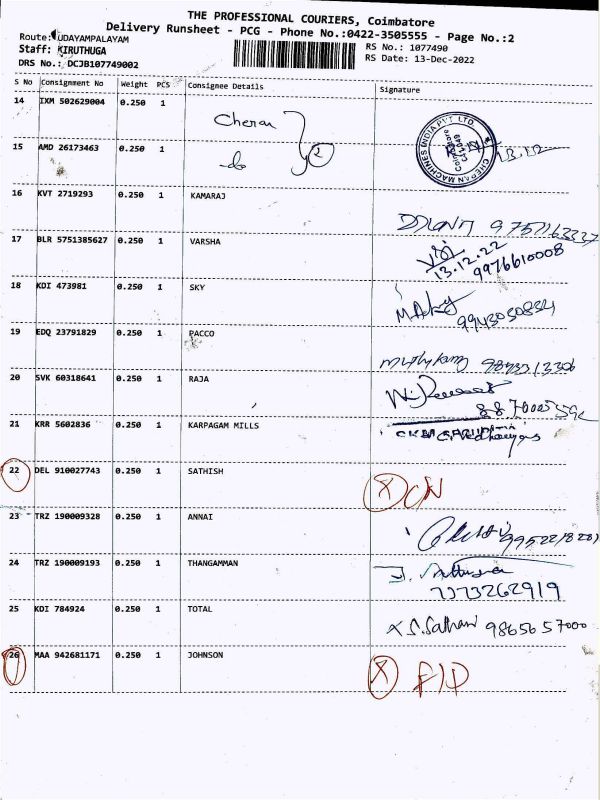 THE PROFESSIONAL COURIERS, Coimbatore
Delivery Runsheet - PCG - Phone No.:0422-3505555 - Page No.:2
Route: UDAYAMPALAYAM
RS No.: 1077490
Staff: KIRUTHUGA
RS Date: 13-Dec-2022
DRS No.: DCJB107749002
S No Consignment No Weight PCS Consignee Details Signature
14 IXM 502629004 0.250 1 Cheran
15 AMD 26173463 0.250 1 do 2 13.12
CHERAN MACHINES INDIA PVT LTD
16 KVT 2719293 0.250 1 KAMARAJ
17 BLR 5751385627 0.250 1 VARSHA 13.12.22
9976610008
18 KDI 473981 0.250 1 SKY
9943030834
19 EDQ 23791829 0.250 1 PACCO
20 SVK 60318641 0.250 1 RAJA
21 KRR 5602836 0.250 1 KARPAGAM MILLS
22 DEL 910027743 0.250 1 SATHISH X DCN
23 TRZ 190009328 0.250 1 ANNAI
24 TRZ 190009193 0.250 1 THANGAMMAN
7373262919
25 KDI 784924 0.250 1 TOTAL 9865657000
26 MAA 942681171 0.250 1 JOHNSON X